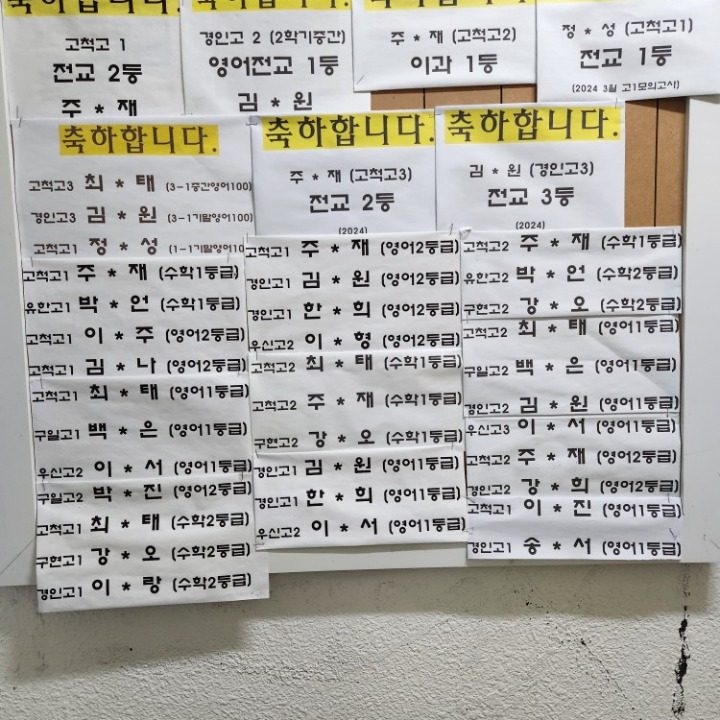 축하합니다.
고척고 1
전교 2등
주 * 재
축하합니다.
경인고 2 (2학기중간)
영어전교 1등
김 * 원
축하합니다.
주 * 재 (고척고2)
이과 1등
정 * 성 (고척고1)
전교 1등
(2024 3월 고1모의고사)
축하합니다.
고척고3 최 * 태 (3-1중간영어100)
경인고3 김 * 원 (3-1기말영어100)
고척고1 정 * 성 (1-1기말영어10
축하합니다.
주 * 재 (고척고3)
전교 2등
(2024)
축하합니다.
김 * 원 (경인고3)
전교 3등
(2024)
고척고1 주 * 재 (수학1등급)
유한고1 박 * 언 (수학1등급)
고척고1 이 * 주 (영어2등급)
고척고1 김 * 나 (영어2등급)
고척고1 최 * 태 (영어1등급)
구일고1 백 * 은 (영어1등급)
우신고2 이 * 서 (영어1등급)
구일고2 박 * 진 (영어2등급)
고척고1 최 * 태 (수학2등급)
구현고1 강 * 오 (수학2등급)
경인고1 이 * 랑 (수학2등급)
고척고1 주 * 재 (영어2등급)
경인고1 김 * 원 (영어2등급)
경인고1 한 * 희 (영어2등급)
우신고2 이 * 형 (영어2등급)
고척고2 최 * 태 (수학1등급)
고척고2 주 * 재 (수학1등급)
구현고2 강 * 오 (수학1등급)
경인고1 김 * 원 (영어1등급)
경인고1 한 * 희 (영어1등급)
우신고2 이 * 서 (영어1등급)
고척고2 주 * 재 (수학1등급)
유한고2 박 * 언 (수학2등급)
구현고2 강 * 오 (수학2등급)
고척고2 최 * 태 (영어1등급)
구일고2 백 * 은 (영어1등급)
경인고2 김 * 원 (영어1등급)
우신고3 이 * 서 (영어1등급)
고척고2 주 * 재 (영어2등급)
경인고2 강 * 희 (영어2등급)
고척고1 이 * 진 (영어1등급)
경인고1 송 * 서 (영어1등급)